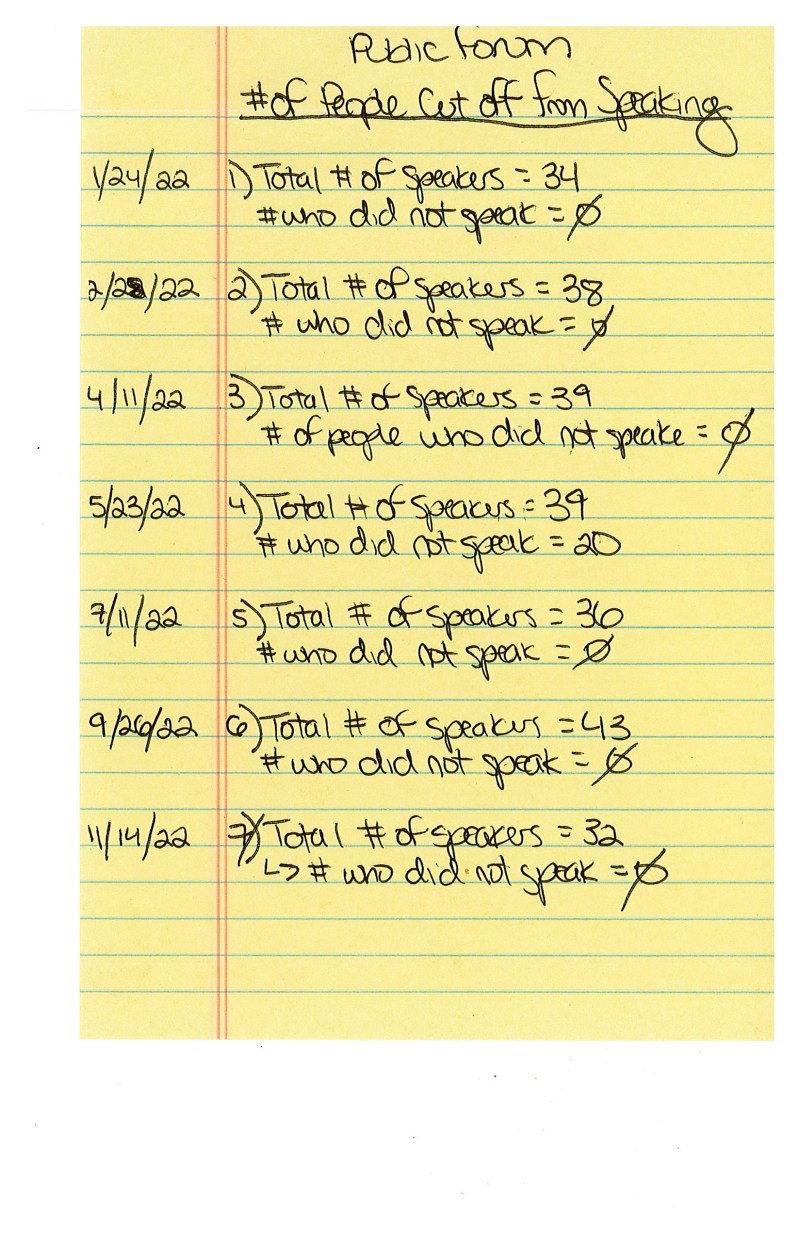 Public Forum
# of People Cut off from Speaking
1/24/22 1) Total # of Speakers = 34
# who did not speak = Ø
2/28/22 2) Total # of Speakers = 38
# who did not speak = Ø
4/11/22 3) Total # of Speakers = 39
# of people who did not speake = Ø
5/23/22 4) Total # of Speakers = 39
# who did not speak = 20
7/11/22 5) Total # of Speakers = 36
# who did not speak = Ø
9/26/22 6) Total # of speakers = 43
# who did not speak = Ø
11/14/22 7) Total # of speakers = 32
↳ # who did not speak = Ø